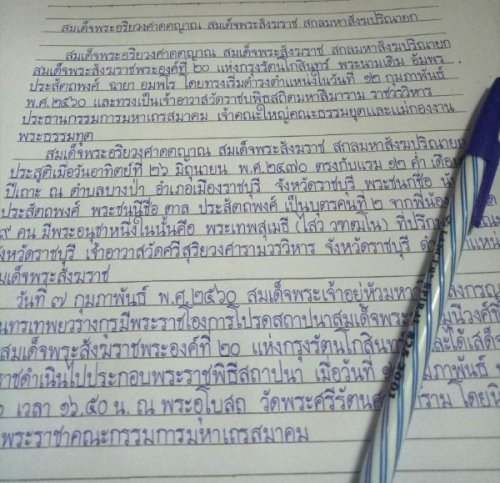 สมเด็จพระอริยวงศาคตญาณ สมเด็จพระสังฆราช สกลมหาสังฆปริณายก
สมเด็จพระอริยวงศาคตญาณ สมเด็จพระสังฆราช สกลมหาสังฆปริณายก
สมเด็จพระสังฆราชพระองค์ที่ ๒๐ แห่งกรุงรัตนโกสินทร์ พระนามเดิม อัมพร
ประสัตถพงศ์ ฉายา อมฺพโร โดยทรงเริ่มดำรงตำแหน่งในวันที่ ๑๒ กุมภาพันธ์
พ.ศ.๒๕๖๐ และทรงเป็นเจ้าอาวาสวัดราชบพิธสถิตมหาสีมาราม ราชวรวิหาร
ประธานกรรมการมหาเถรสมาคม เจ้าคณะใหญ่คณะธรรมยุตและแม่กองงาน
พระธรรมทูต
สมเด็จพระอริยวงศาคตญาณ สมเด็จพระสังฆราช สกลมหาสังฆปริณายก
ประสูติเมื่อวันอาทิตย์ที่ ๒๖ มิถุนายน พ.ศ.๒๔๗๐ ตรงกับแรม ๑๒ ค่ำ เดือน
ปีเถาะ ณ ตำบลบางป่า อำเภอเมืองราชบุรี จังหวัดราชบุรี พระชนกชื่อ
ประสัตถพงศ์ พระชนนีชื่อ ตาล ประสัตถพงศ์ เป็นบุตรคนที่ ๒ จากพี่น้อง
๙ คน มีพระอนุชาหนึ่งในนั้นคือ พระเทพสุเมธี (ไสว วฑฺฒโน) ที่ปรึกษา
จังหวัดราชบุรี เจ้าอาวาสวัดศรีสุริยวงศารามวรวิหาร จังหวัดราชบุรี
สมเด็จพระสังฆราช
วันที่ ๗ กุมภาพันธ์ พ.ศ.๒๕๖๐ สมเด็จพระเจ้าอยู่หัวมหา
นทรเทพยวรางกูรมีพระราชโองการโปรดสถาปนาสมเด็จพระ
สมเด็จพระสังฆราชพระองค์ที่ ๒๐ แห่งกรุงรัตนโกสินทร์ และได้เสด็จ
ราชดำเนินไปประกอบพระราชพิธีสถาปนา เมื่อวันที่ กุมภาพันธ์
เวลา ๑๖.๕๐ น. ณ พระอุโบสถ วัดพระศรีรัตน โดย
พระราชาคณะกรรมการมหาเถรสมาคม